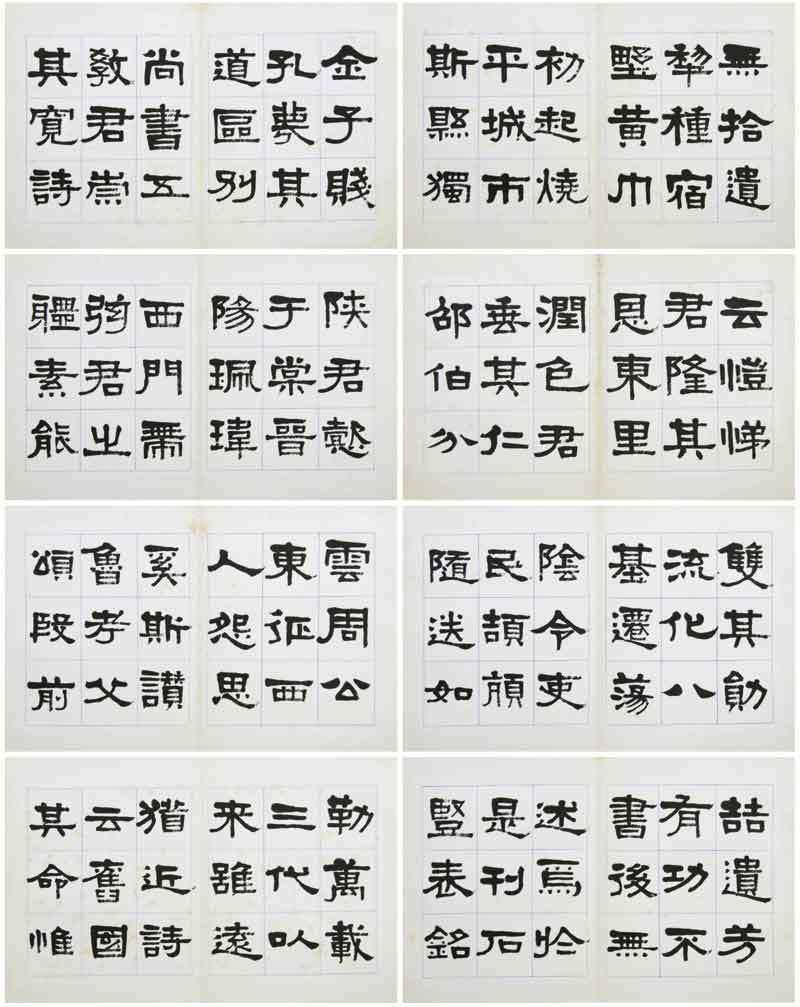 無拾遺
犁種宿
壄黃巾
初起燒
平城市
斯縣獨
全子賤
孔蔑其
道區別
尚書五
教君崇
其寬詩
云愷悌
君隆其
恩東里
潤色君
垂其仁
邵伯分
陝君懿
于棠晉
陽珮瑋
西門帶
弦君之
體素能
雙其勛
流化八
基遷蕩
陰令吏
民頡頏
隨送如
雲周公
東征西
人怨思
奚斯讚
魯孝父
頌殷前
喆遺芳
有功不
書後無
述焉於
是刊石
豎表銘
勒萬載
三代以
来雖遠
猶近詩
云舊國
其命惟